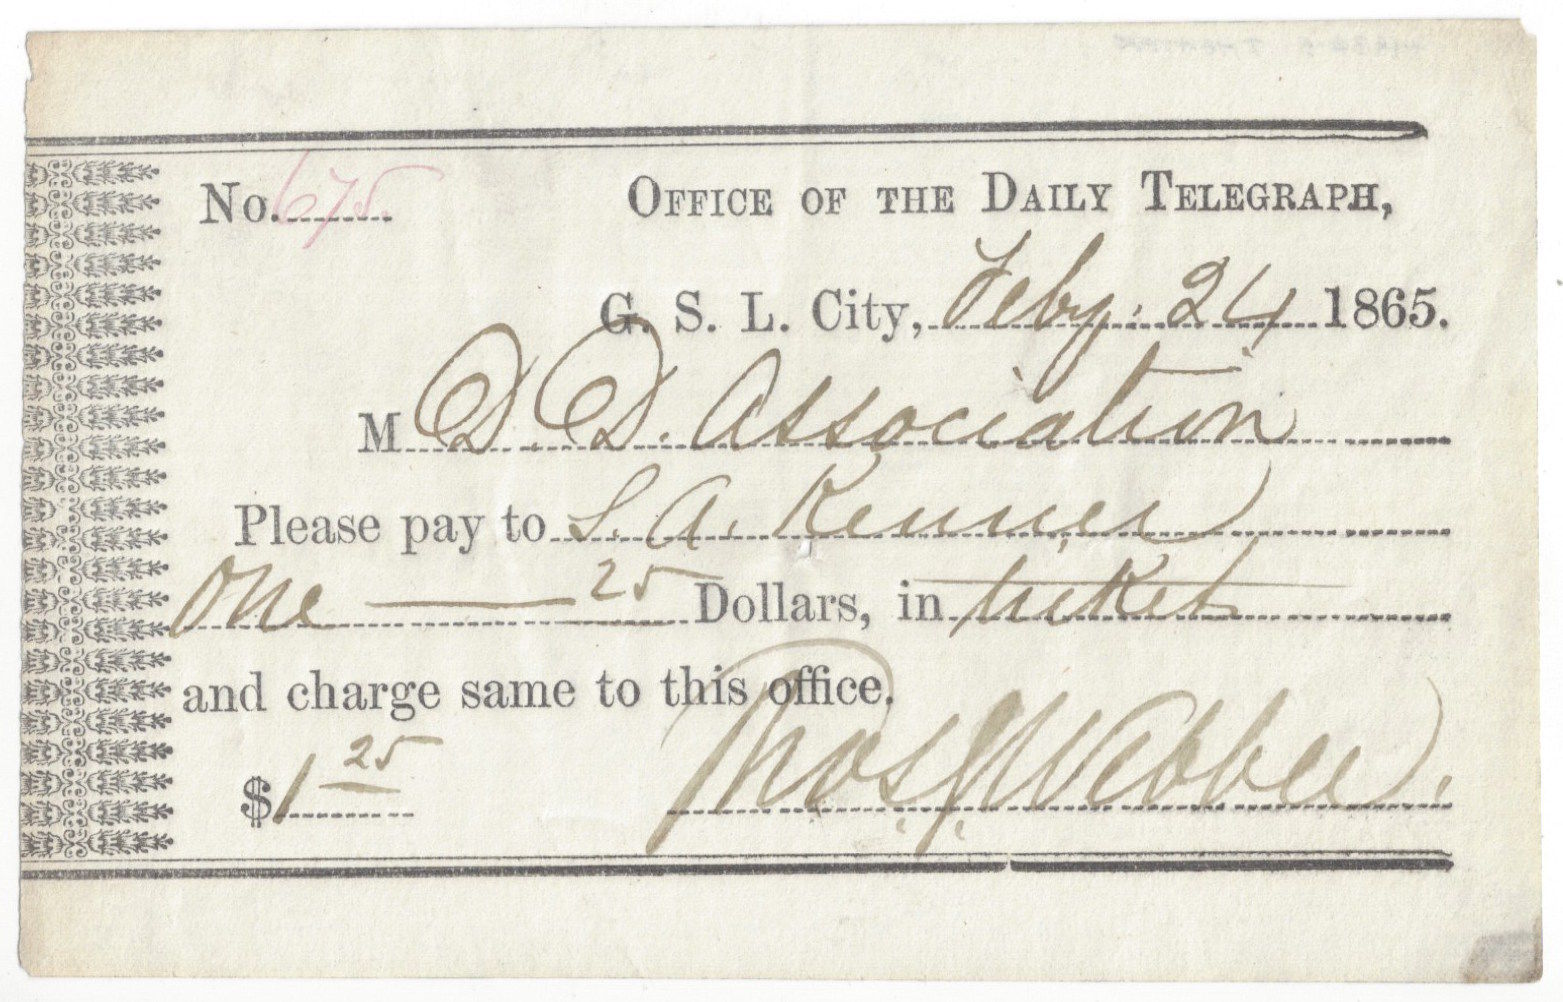 No. 675 OFFICE OF THE DAILY TELEGRAPH,
G. S. L. City, Feby. 24 1865.
M D. D. Association
Please pay to S. A. Kenner
One 25 Dollars, in ticket
and charge same to this office.
$1 25 Thos. J. Webber.